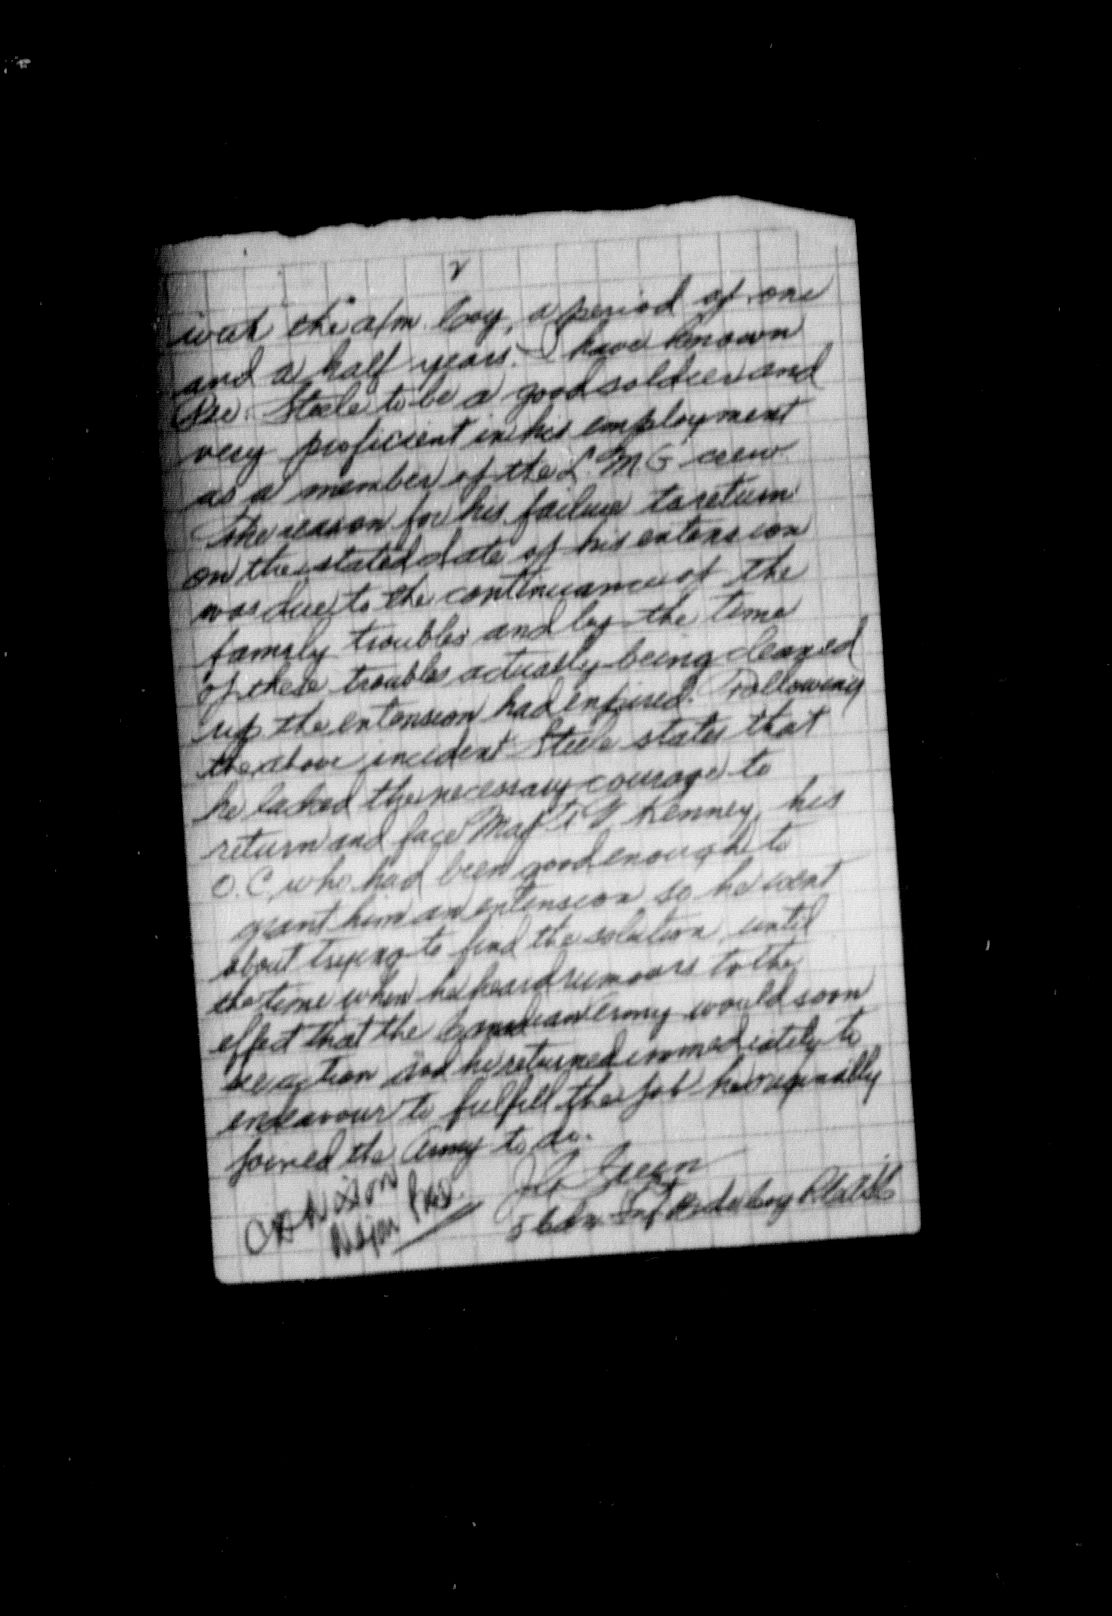 2
with the a/m Coy, a period of one
and a half years. I have known
Pte. Steele to be a good soldier and
very proficient in his employment
as a member of the L.M.G crew.
The reason for his failure to return
on the stated date of his extension
was due to the continuance of the
family troubles and by the time
of these troubles actually being cleared
up the extension had expired. Following
the above incident Steele states that
he lacked the necessary courage to
return and face Maj Kenney, his
O.C. who had been good enough to
grant him an extension so he went
about trying to find the solution, until
the time when he heard rumours to the
effect that the Canadian Army would soon
see action and he returned immediately to
endeavour to fulfill the job he originally
joined the Army to do.
Green
Nixon
Major Pres.
5 Cdn Inf Bde Coy